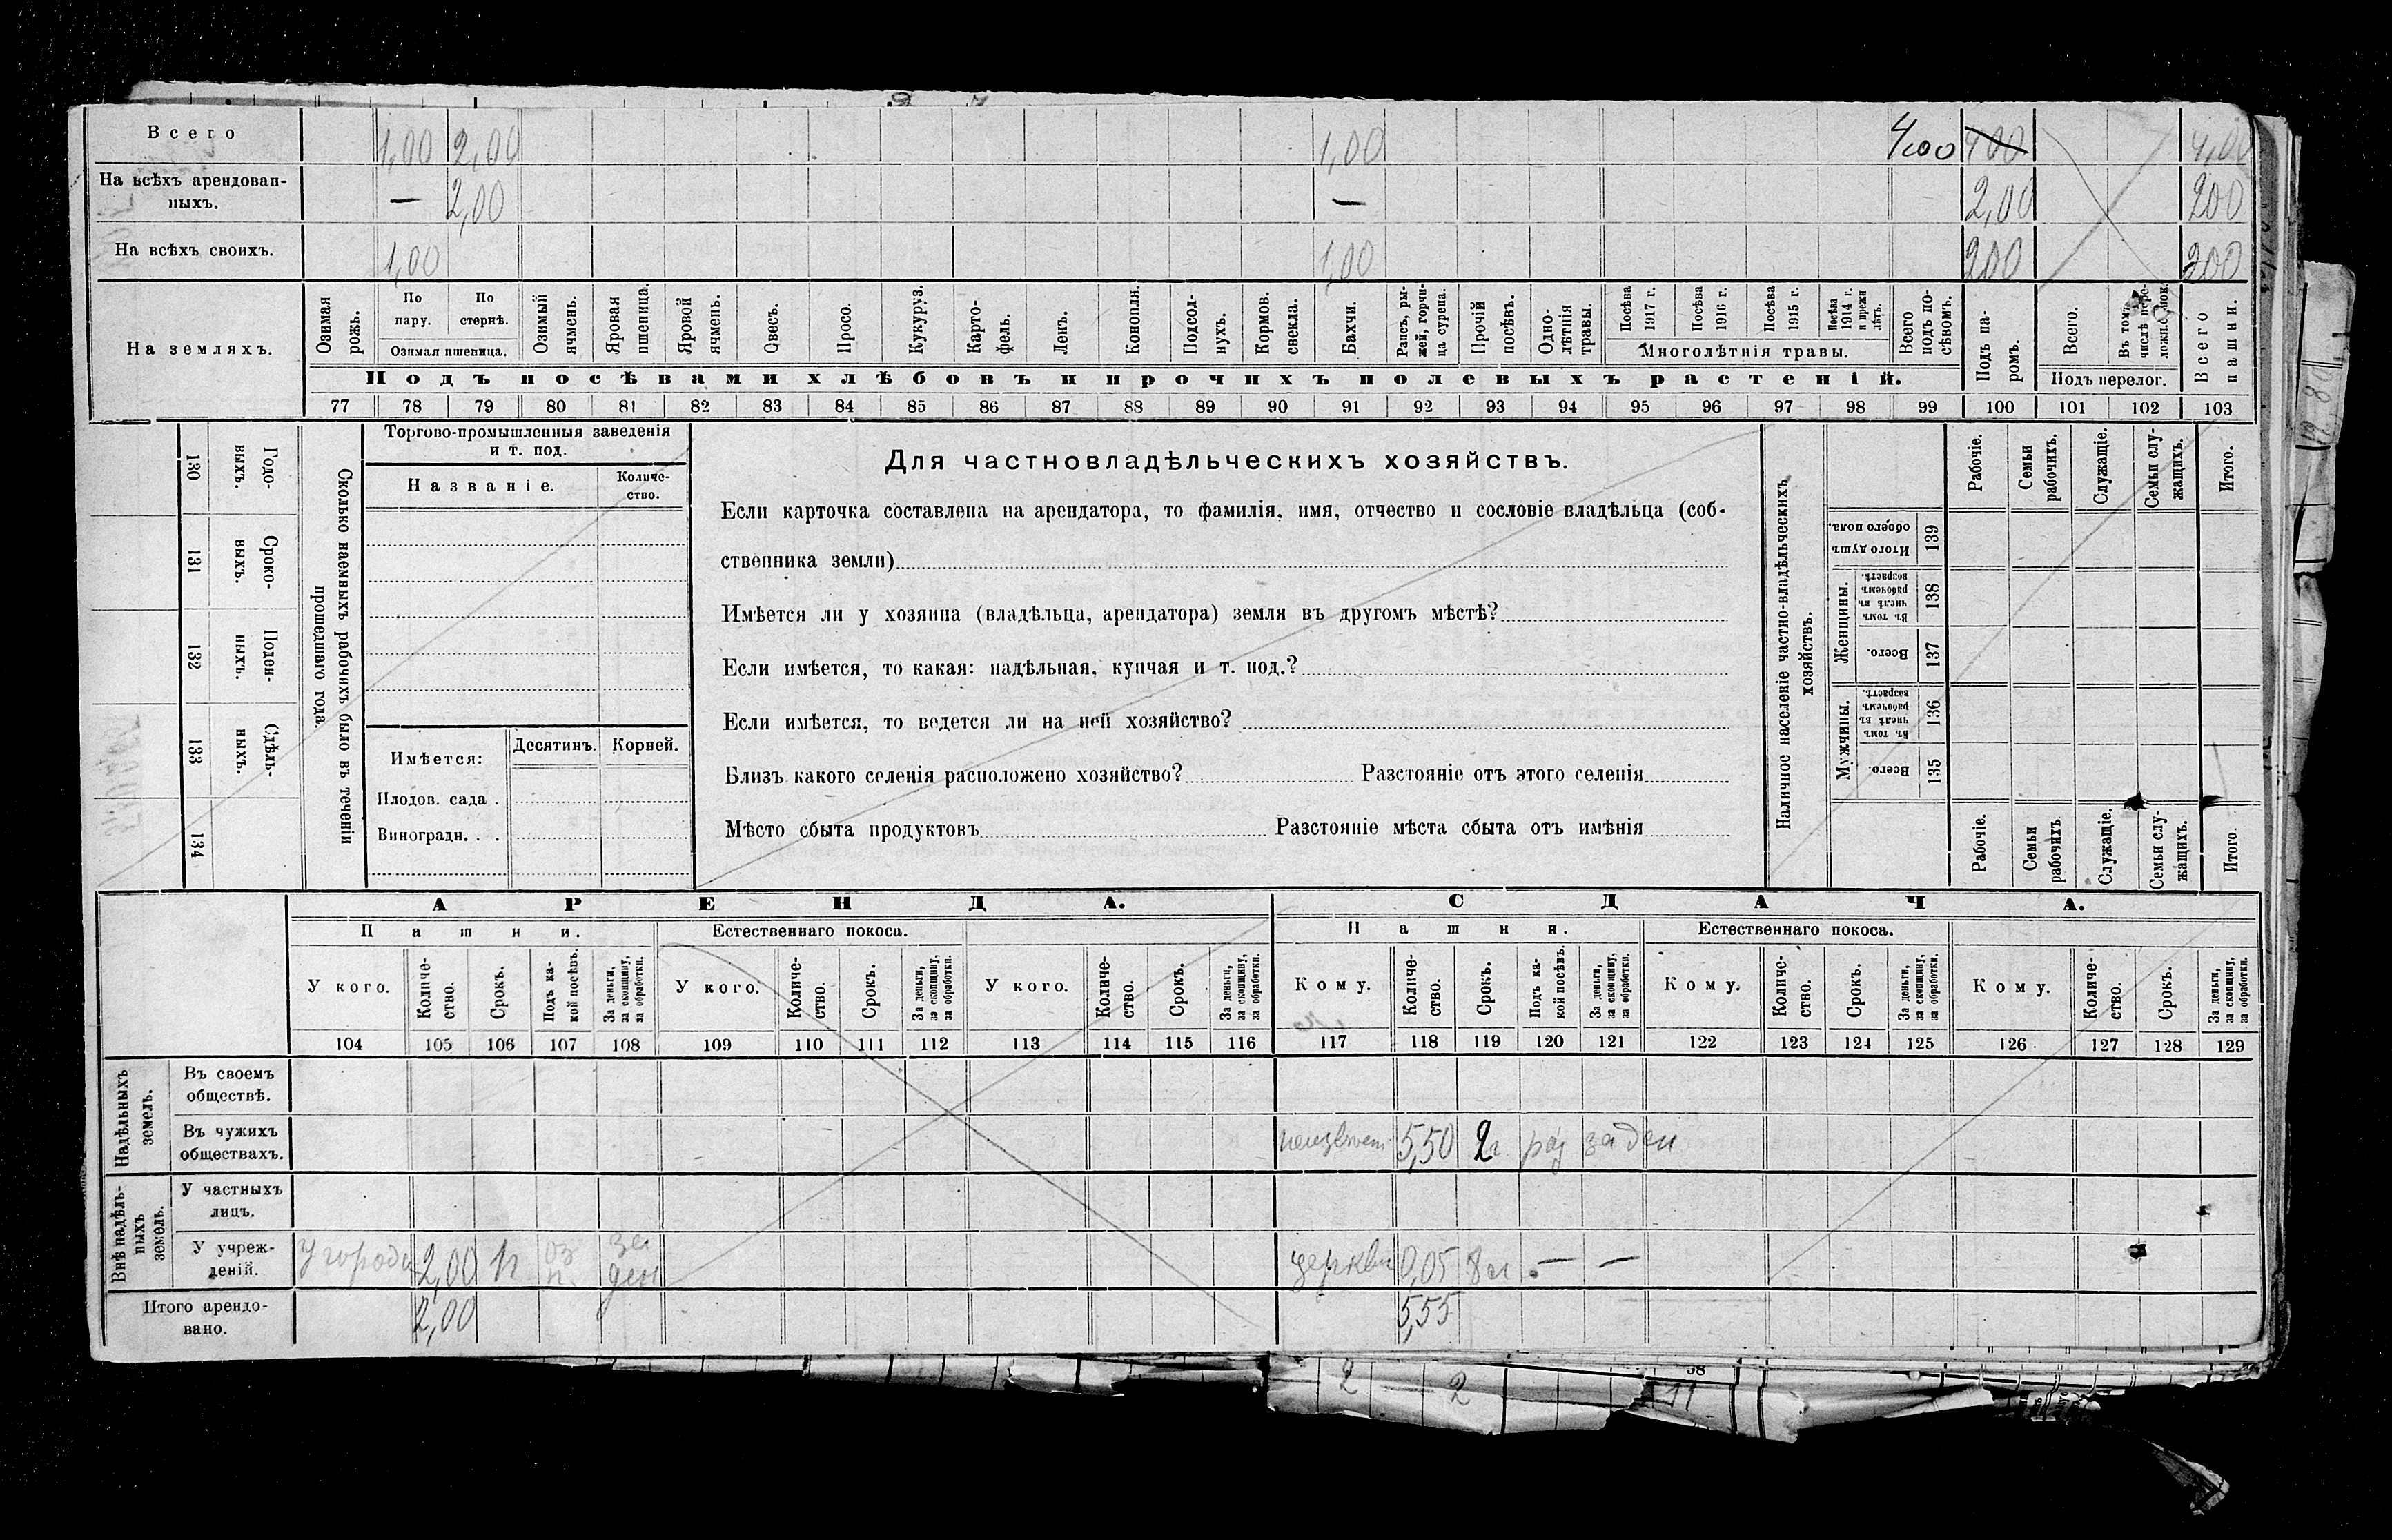 Всего 1,00 2,00 1,00 4,00 4,00 4,00
На всѣхъ арендован-
ныхъ. — 2,00 — 2,00 200
На всѣхъ своихъ. 1,00 1,00 200 200
На земляхъ.
Озимая рожь.
По пару.
По стернѣ.
Озимая пшеница.
Озимый ячмень.
Яровая пшеница.
Яровой ячмень.
Овесъ.
Просо.
Кукуруз.
Карто-
фель.
Ленъ.
Конопля.
Подсол-
нухъ.
Кормов. свекла.
Бахчи.
Рапсъ, ры-
жей, горчи-
ца сурепа.
Прочій посѣвъ.
Одно-
лѣтнія травы.
Посѣва 1917 г.
Посѣва 1916 г.
Посѣва 1915 г.
Посѣва 1914 г. и прежн лѣтъ.
Многолѣтнія травы.
Всего подъ по-
сѣвомъ.
Подъ па-
ромъ.
Всего.
Въ томъ числѣ пере-
Подъ перелог.
Всего пашни.
Подъ посѣвами хлѣбовъ и прочихъ полевыхъ растеній.
77 78 79 80 81 82 83 84 85 86 87 88 89 90 91 92 93 94 95 96 97 98 99 100 101 102 103
130 Годо-
выхъ.
131 Сроко-
выхъ.
132 Поден-
ныхъ.
133 Сдѣль-
ныхъ.
134
Сколько наемныхъ рабочихъ было въ теченіи
прошедшаго года.
Торгово-промышленныя заведенія
и т. под.
Названіе. Количе-
ство.
Имѣется: Десятинъ. Корней.
Плодов. сада .
Виноградн. . .
Для частновладѣльческихъ хозяйствъ.
Если карточка составлена на арендатора, то фамилія, имя, отчество и сословіе владѣльца (соб-
ственника земли)
Имѣется ли у хозяина (владѣльца, арендатора) земля въ другомъ мѣстѣ?
Если имѣется, то какая: надѣльная, купчая и т. под.?
Если имѣется, то ведется ли на ней хозяйство?
Близъ какого селенія расположено хозяйство? Разстояніе отъ этого селенія
Мѣсто сбыта продуктовъ Разстояніе мѣста сбыта отъ имѣнія
Наличное населеніе частно-владѣльческихъ
хозяйствъ.
Рабочіе. Семьи рабочихъ. Служащіе. Семьи слу-
жащихъ. Итого.
Итого душъ обоего пола. 139
Женщины. Въ томъ числѣ въ рабочемъ возрастѣ. 138
Всего. 137
Мужчины. Въ томъ числѣ въ рабочемъ возрастѣ. 136
Всего. 135
Рабочіе. Семьи рабочихъ Служащіе. Семьи слу-
жащихъ. Итого.
АРЕНДА. СДАЧА.
Пашни. Естественнаго покоса. Пашни. Естественнаго покоса.
У кого. Количе-
ство. Срокъ. Подъ ка-
кой посѣвъ. За деньги, за скопщину, за обработки.
У кого. Количе-
ство. Срокъ. За деньги, за скопщину, за обработки.
У кого. Количе-
ство. Срокъ. За деньги, за скопщину, за обработки.
Кому. Количе-
ство. Срокъ. Подъ ка-
кой посѣвъ. За деньги, за скопщину, за обработки.
Кому. Количе-
ство. Срокъ. За деньги, за скопщину, за обработки.
Кому. Количе-
ство. Срокъ. За деньги, за скопщину, за обработки.
104 105 106 107 108 109 110 111 112 113 114 115 116 117 118 119 120 121 122 123 124 125 126 127 128 129
Надѣльныхъ земель.
Въ своемъ
обществѣ.
Въ чужихъ
обществахъ. 5,50 2г за ден
Внѣ надѣль-
ныхъ земель.
У частныхъ
лицъ.
У учреж-
деній. У города 2,00 оз за ден церкви 0,05 — —
Итого арендо-
вано. 2,00 5,55
2 2 38 11